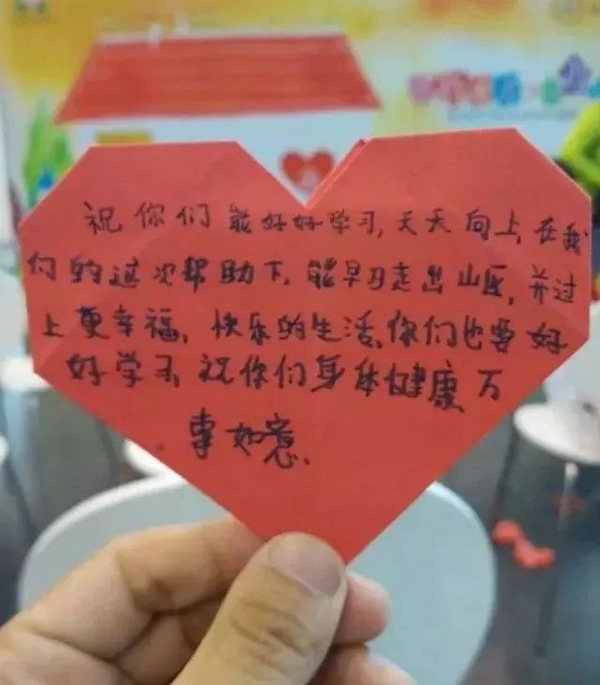 祝你们能好好学习,天天向上,在我
们的这次帮助下,能早习走出山区,并过
上更幸福,快乐的生活,你们也要好
好学习,祝你们身体健康万
事如意.